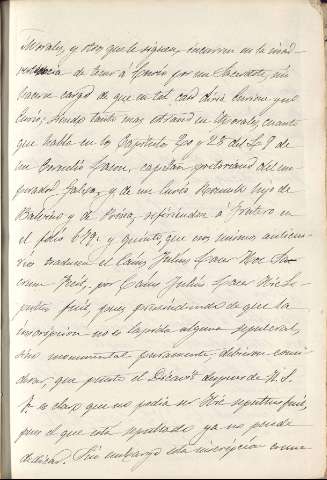 Morales, y otro que le siguen, incurren en la inad-
vertencia de tener á Curio por un Sacerdote, sin
hacerse cargo de que en tal caso diria Curione y no
Curio, siendo tanto mas estraño en Morales, cuanto
que habla en los Capitulos 20 y 28 del L. 9 de
un Cornelio Lacon, capitan pretoriano del em-
perador Galba, y de un Curio Romulo hijo de
Balerino y de Rosina, refiriendose á Frutero en
el fólio 679: y quinto, que esos mismos anticua-
rios traducen el Caius Julius Caer Hoc Se
fecit, por Caius Julius Caer Hic Se-
pultus fuit, pues prescindiendo de que la
inscripcion no es lapida alguna sepulcral,
sino monumental puramente, debieron consi-
derar, que puesto el Dicavit despues de H. S.
F. es claro que no podia ser Hic sepultus fuit,
pues el que está sepultado ya no puede
dedicar. Sin embargo esta inscripcion como